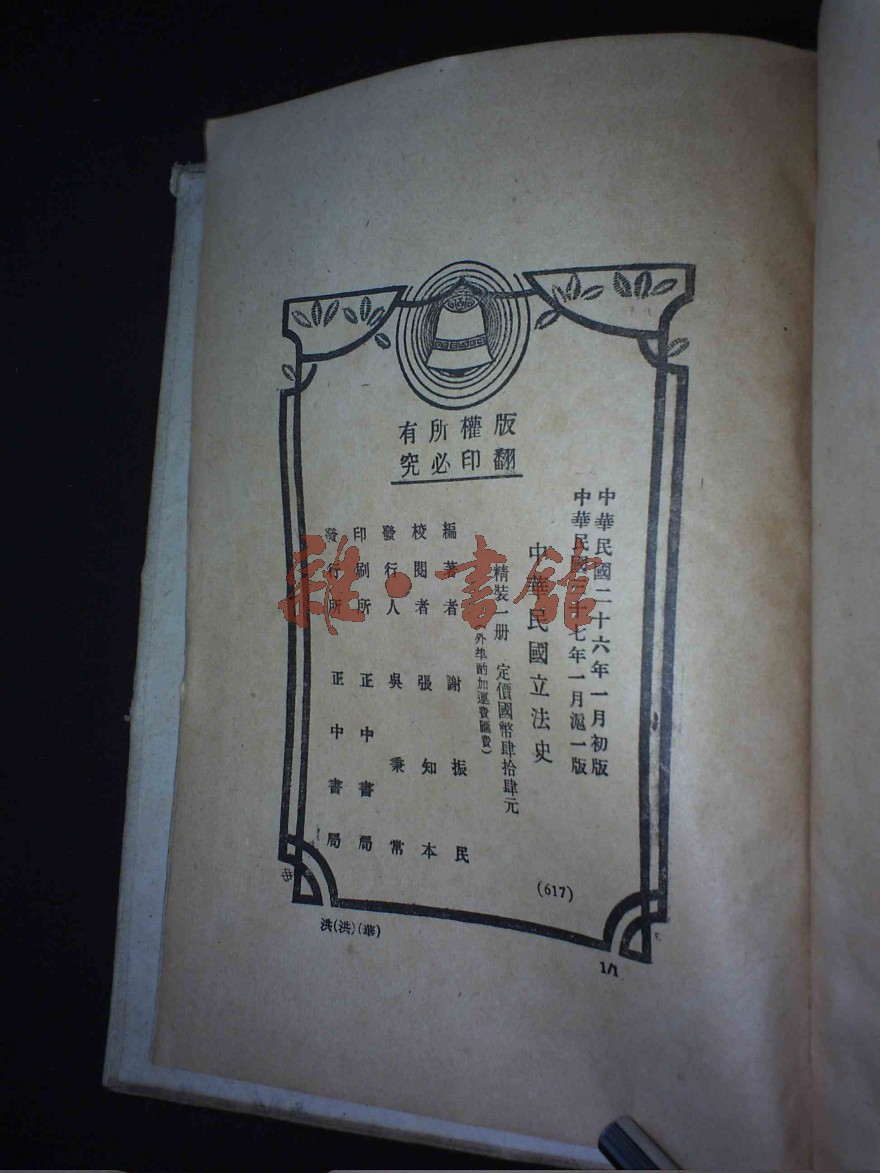 版權所有
翻印必究
中華民國二十六年一月初版
中華民國三十七年一月滬一版
中華民國立法史
精裝一册 定價國幣肆拾肆元
外埠酌加運費匯費）
編著者 謝振民
校閱者 張知本
發行人 吳秉常
印刷所 正中書局
發行所 正中書局
(617)
洪(洪)(華)
1/1
雜·書館